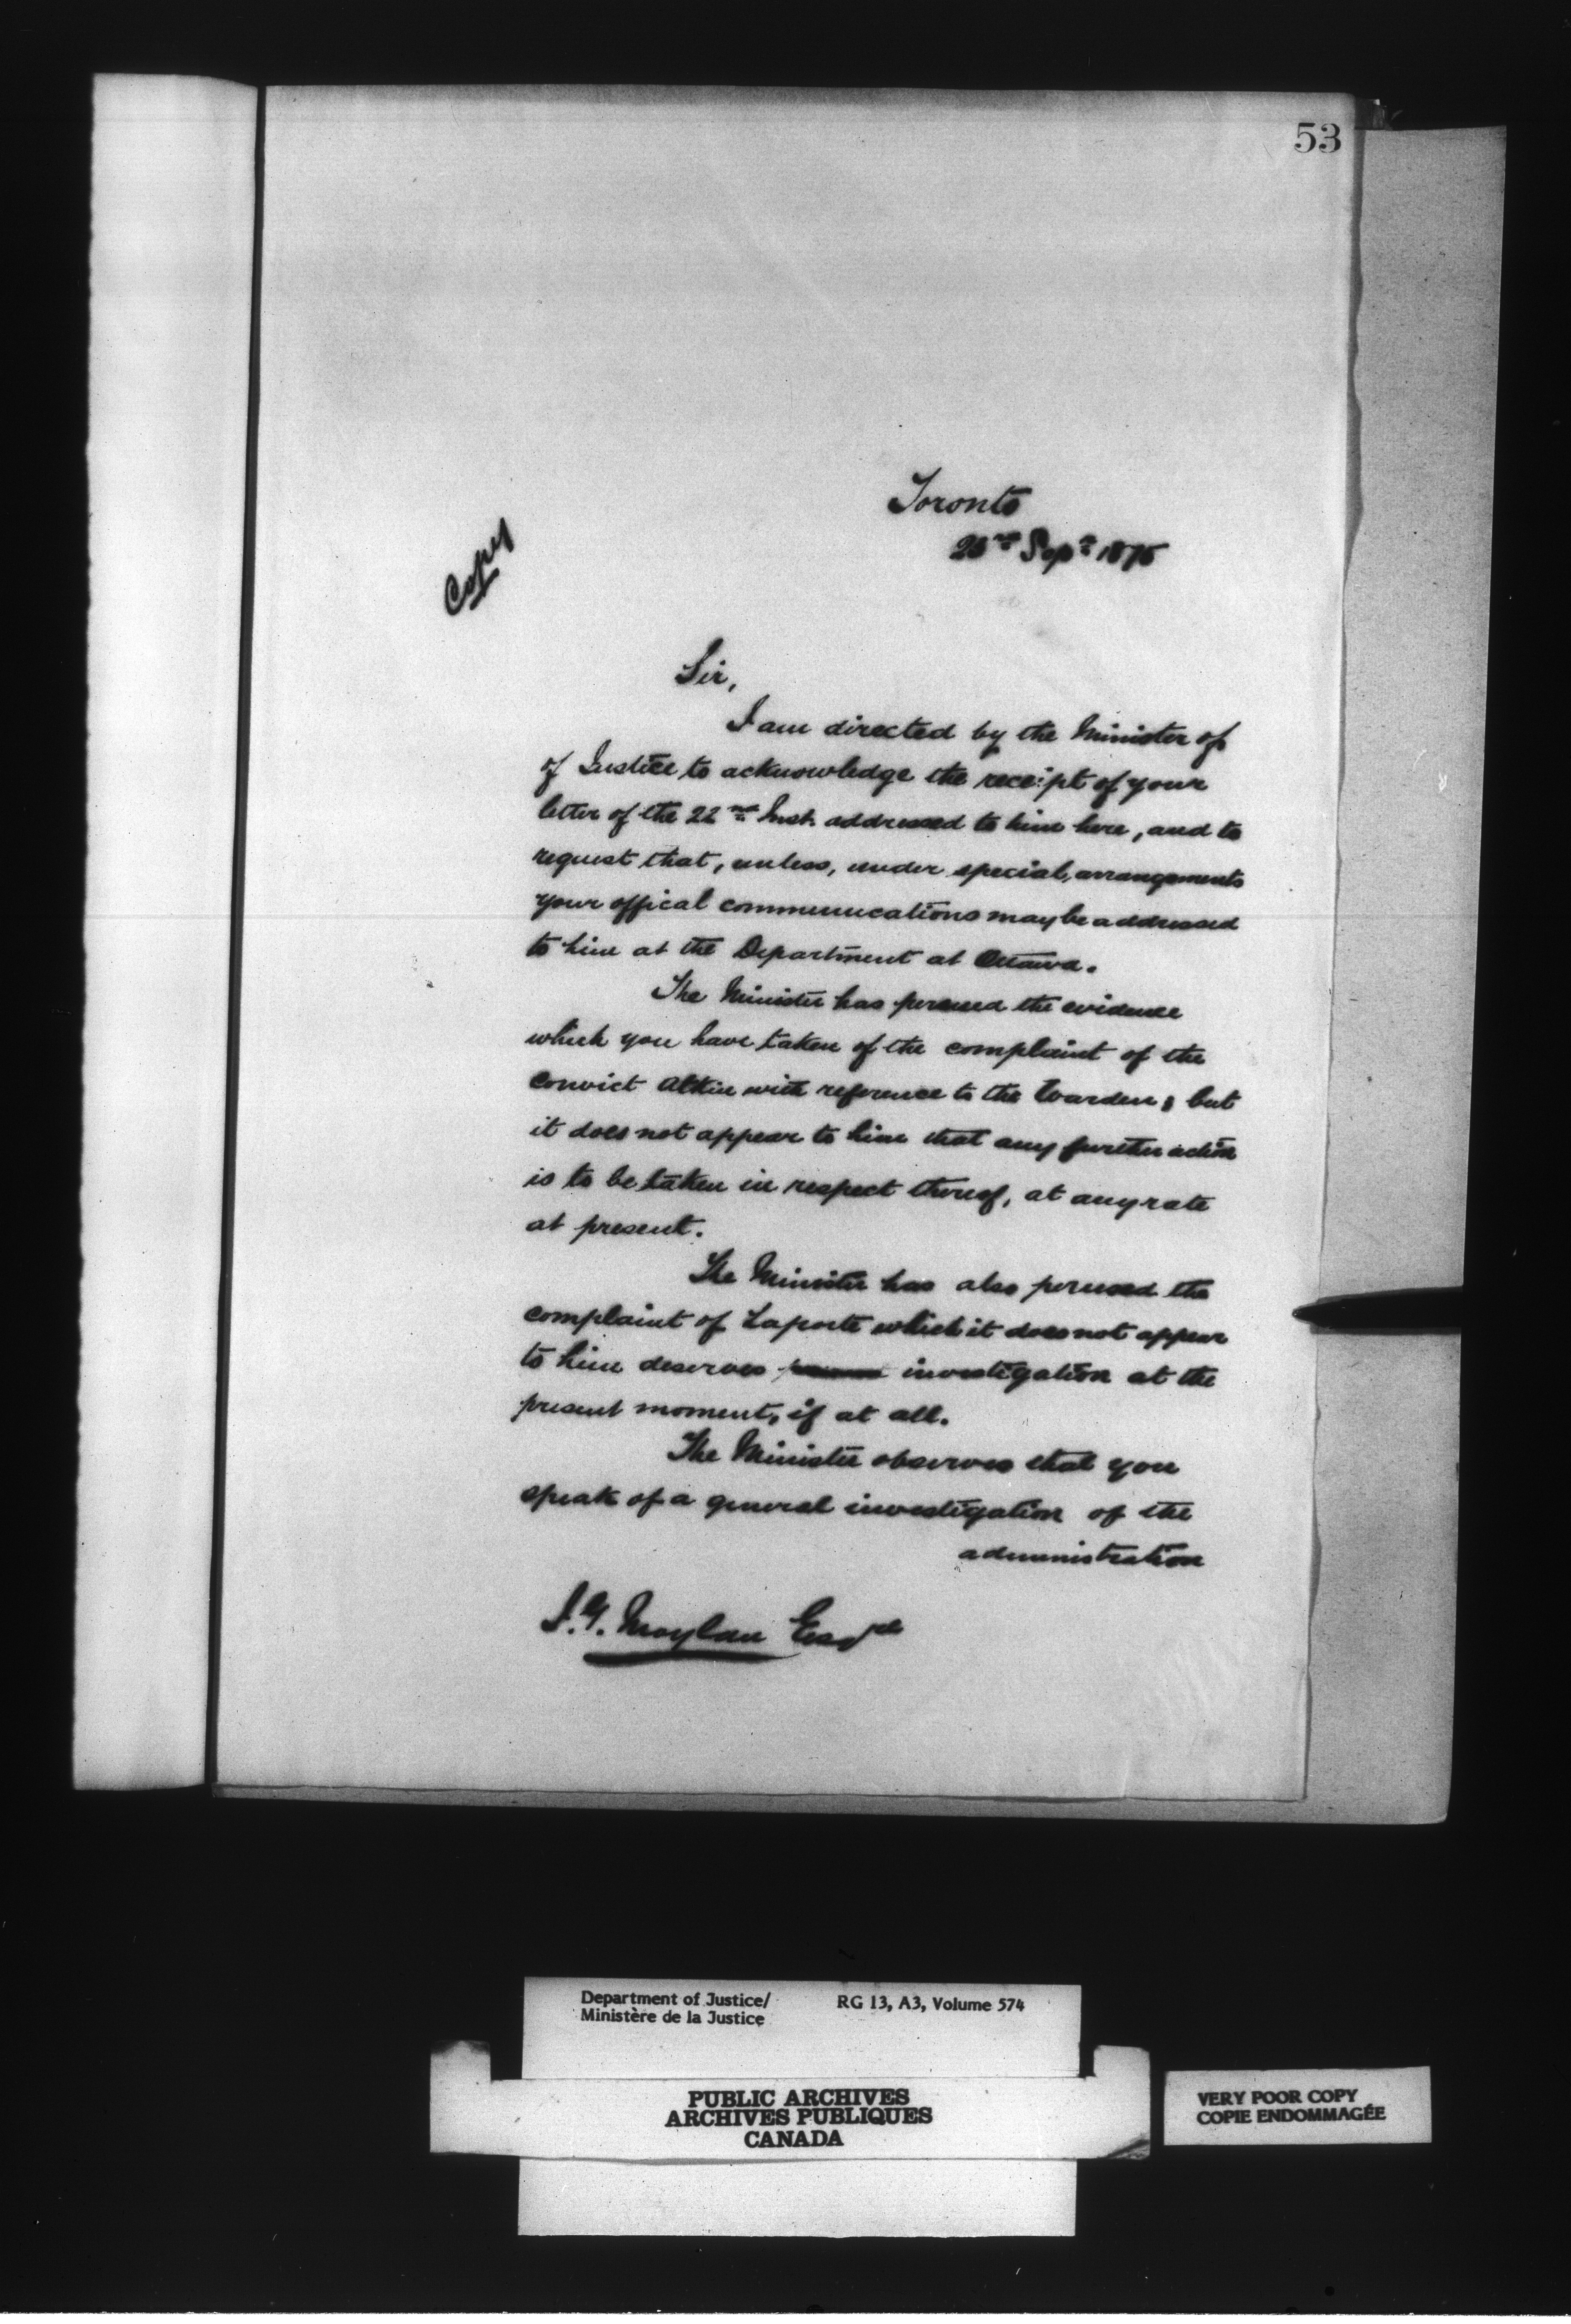 53
Toronto
Copy
Sept 1875
Sir,
I am directed by the Minister of
of Justice to acknowledge the receipt of your
letter of the 22nd Inst. addressed to him here, and to
request that, unless, under special, arrangements
your offical communications may be addressed
to him at the Department at Ottawa.
The Minister has perused the evidence
which you have taken of the complaint of the
convict with reference to the Warden; but
it does not appear to him that any further action
is to be taken in respect thereof, at any rate
at present.
The Minister has also perused the
complaint of Laporte which it does not appear
to him deserves investigation at the
present moment, if at all.
The Minister observes that you
speak of a general investigation of the
administration
J.G. Moylan Esqre
Department of Justice/ RG 13, A3, Volume 574
Ministère de la Justice
PUBLIC ARCHIVES
ARCHIVES PUBLIQUES
CANADA
VERY POOR COPY
COPIE ENDOMMAGÉE